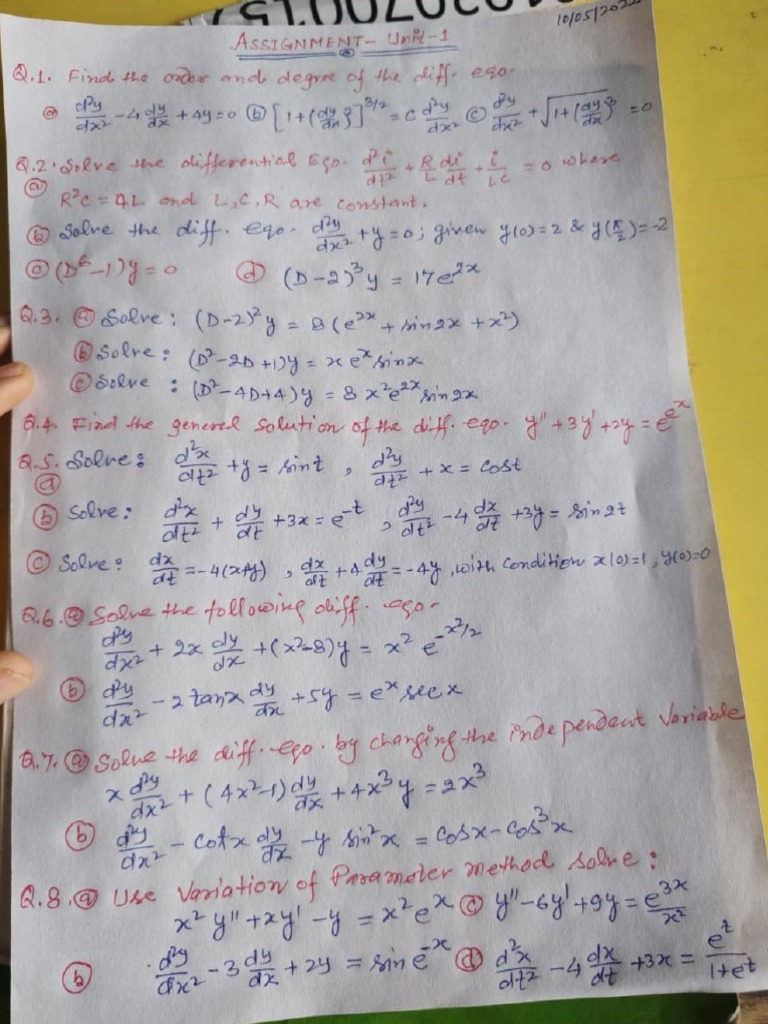 10/05/20
ASSIGNMENT- Unit-1
Q.1. Find the order and degree of the diff. eqn.
ⓐ d²y/dx² - 4 dy/dx + 4y = 0 ⓑ [1+(dy/dx)²]^3/2 = c d²y/dx² ⓒ d²y/dx² + √1+(dy/dx)³ = 0
Q.2. Solve the differential Eqn. d²i/dt² + R/L di/dt + i/LC = 0 where
ⓐ R²C = 4L and L, C, R are constant.
ⓑ Solve the diff. eqn. d²y/dx² + y = 0; given y(0) = 2 & y(π/2) = -2
ⓒ (D⁶-1)y = 0 ⓓ (D-2)³y = 17e^2x
Q.3. ⓐ Solve: (D-2)²y = 8(e^2x + sin2x + x²)
ⓑ Solve: (D²-2D+1)y = x e^x sinx
ⓒ Solve : (D²-4D+4)y = 8 x² e^2x sin2x
Q.4. Find the general solution of the diff. eqn. y'' + 3y' + 2y = e^e^x
Q.5. Solve: d²x/dt² + y = sint , d²y/dt² + x = cost
ⓐ
ⓑ Solve: d²x/dt² + dy/dt + 3x = e^-t , d²y/dt² - 4 dx/dt + 3y = sin2t
ⓒ Solve: dx/dt = -4(x+y) , dx/dt + 4 dy/dt = -4y , with condition x(0)=1, y(0)=0
Q.6. ⓐ Solve the following diff. eqn.
d²y/dx² + 2x dy/dx + (x²-8)y = x² e^-x²/2
ⓑ d²y/dx² - 2 tanx dy/dx + 5y = e^x secx
Q.7. ⓐ Solve the diff. eqn. by changing the independent Variable
x d²y/dx² + (4x²-1) dy/dx + 4x³y = 2x³
ⓑ d²y/dx² - cotx dy/dx - y sin²x = cosx - cos³x
Q.8. ⓐ Use Variation of Parameter method solve :
x² y'' + xy' - y = x² e^x ⓒ y'' - 6y' + 9y = e^3x/x²
ⓑ d²y/dx² - 3 dy/dx + 2y = sin e^-x ⓓ d²x/dt² - 4 dx/dt + 3x = e^t/1+e^t